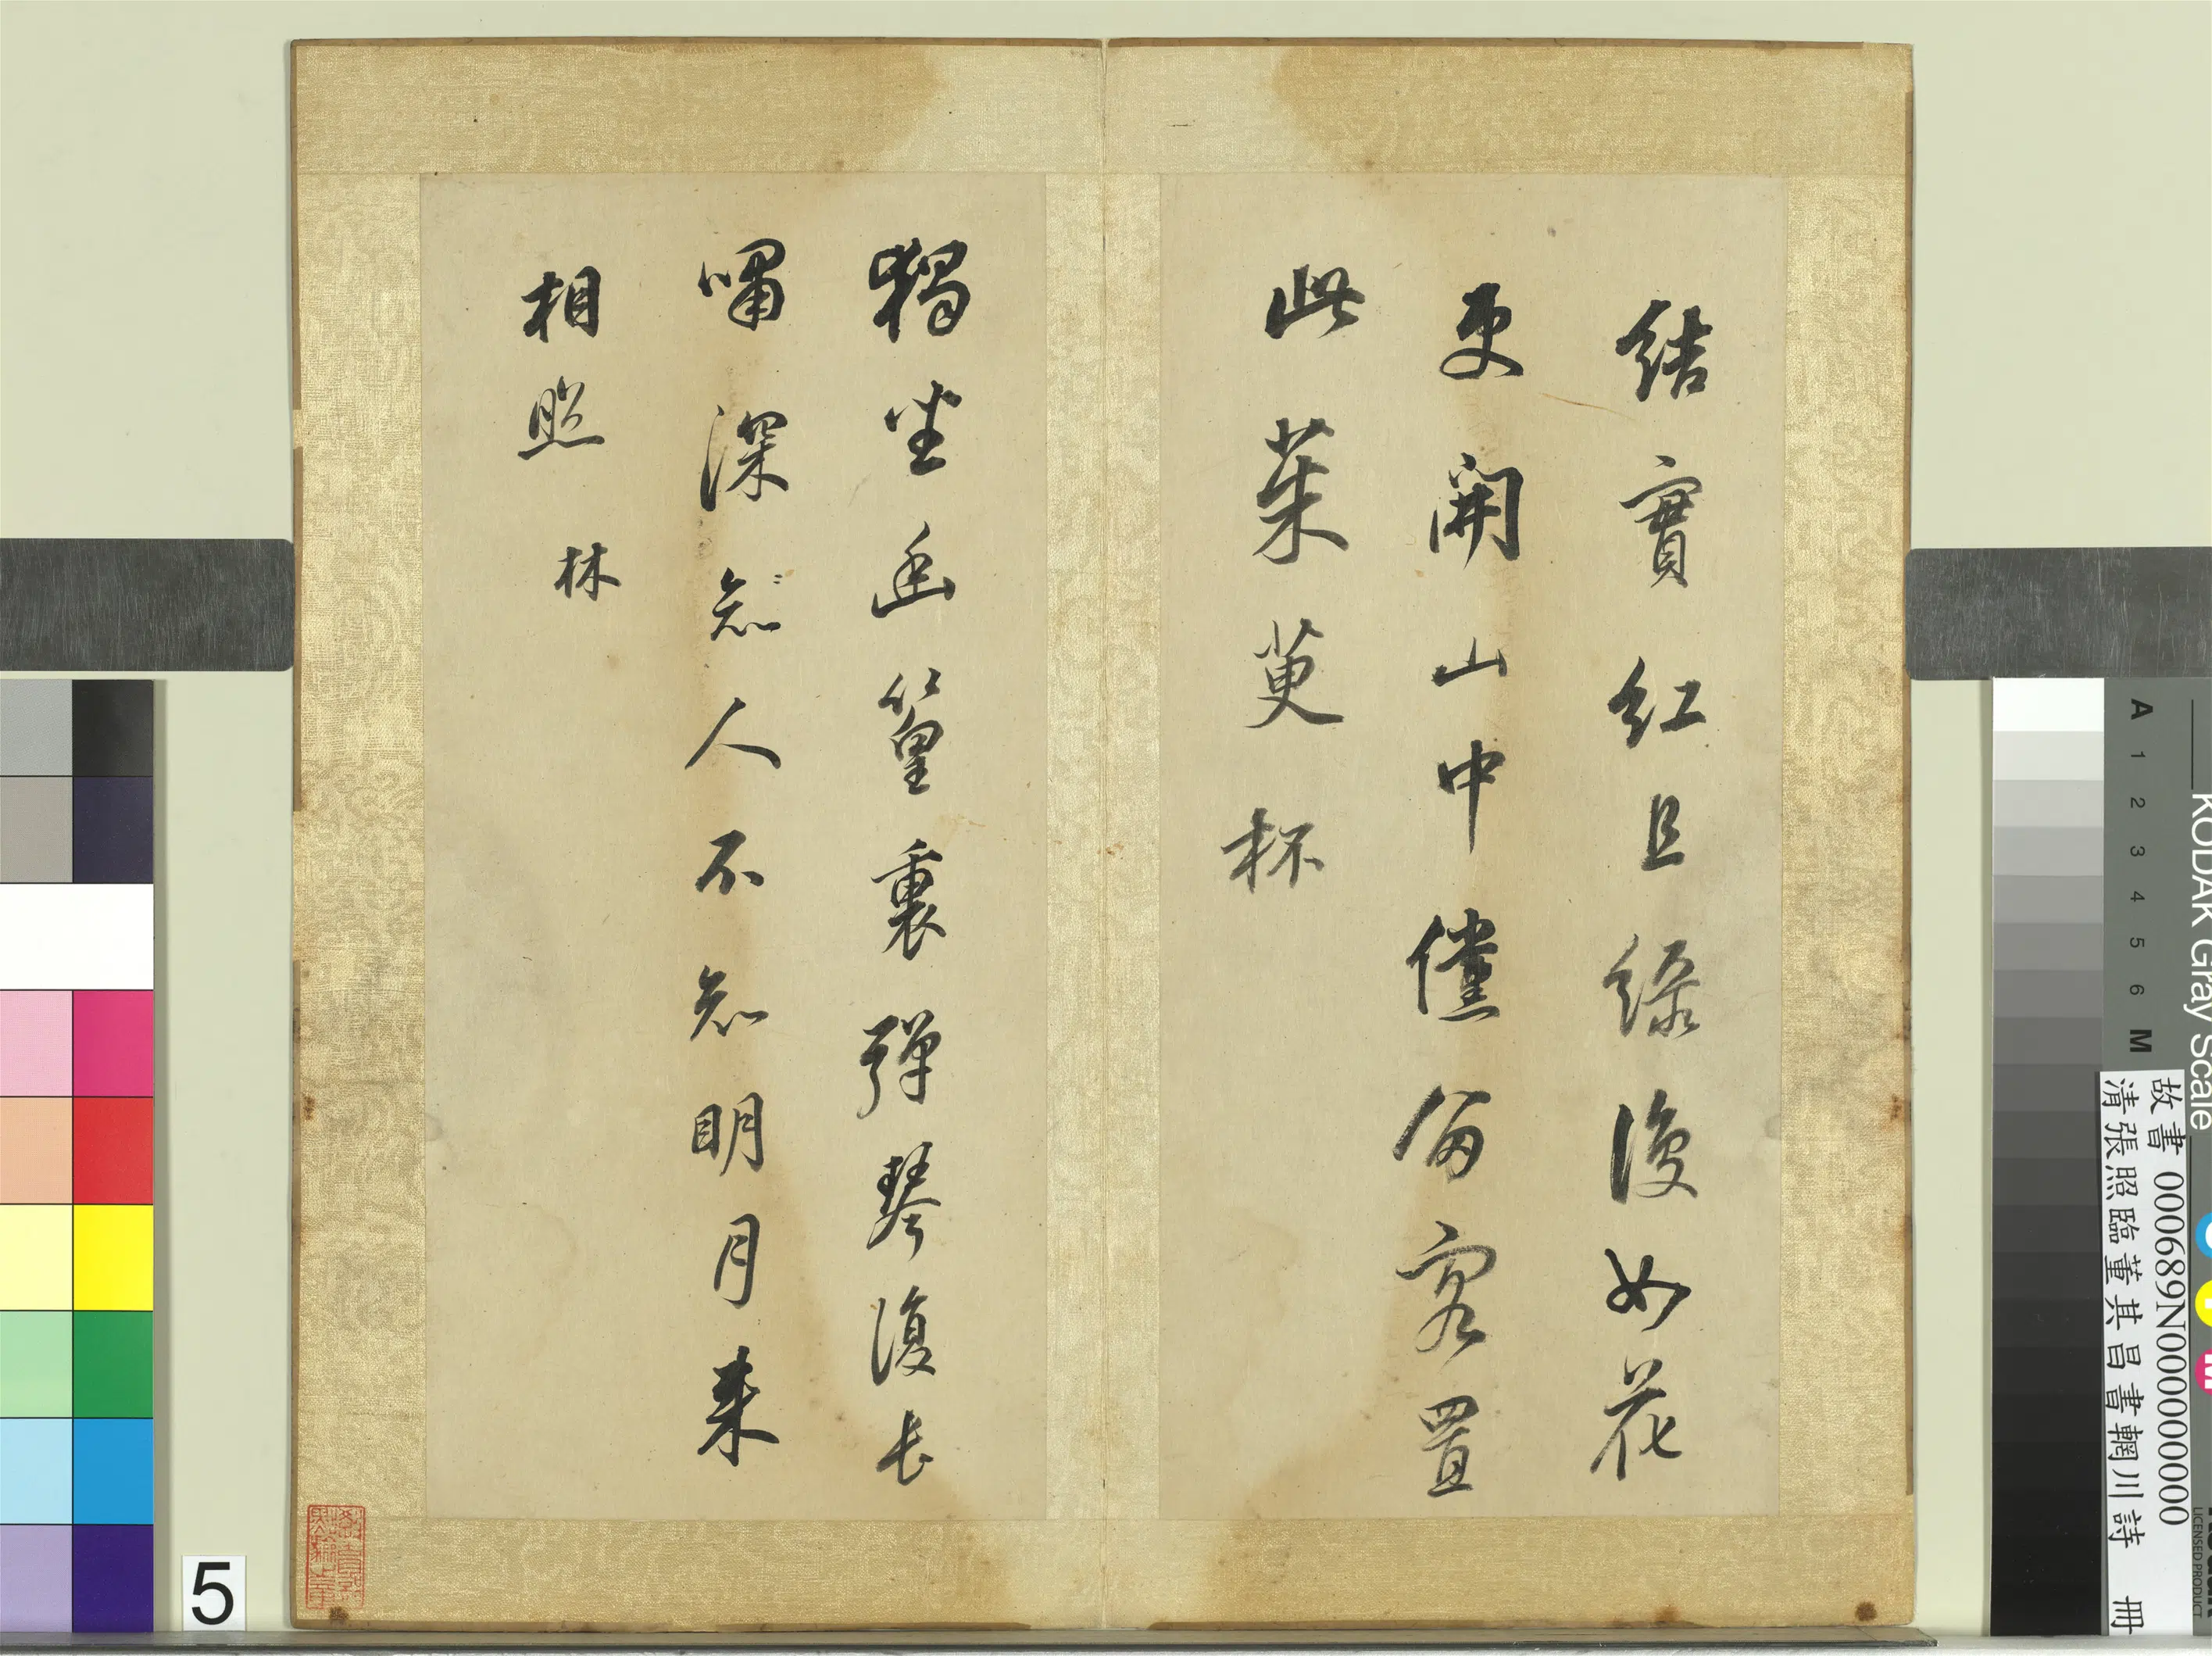 結實紅且綠復如花
更開山中儻留客置
此茱萸杯
獨坐幽篁裏彈琴復長
嘯深知人不知明月来
相照 林
5
KODAK Gray Scale
A 1 2 3 4 5 6 M
LICENSED PRODUCT
故書 000689N000000000
清張照臨董其昌書輞川詩 冊